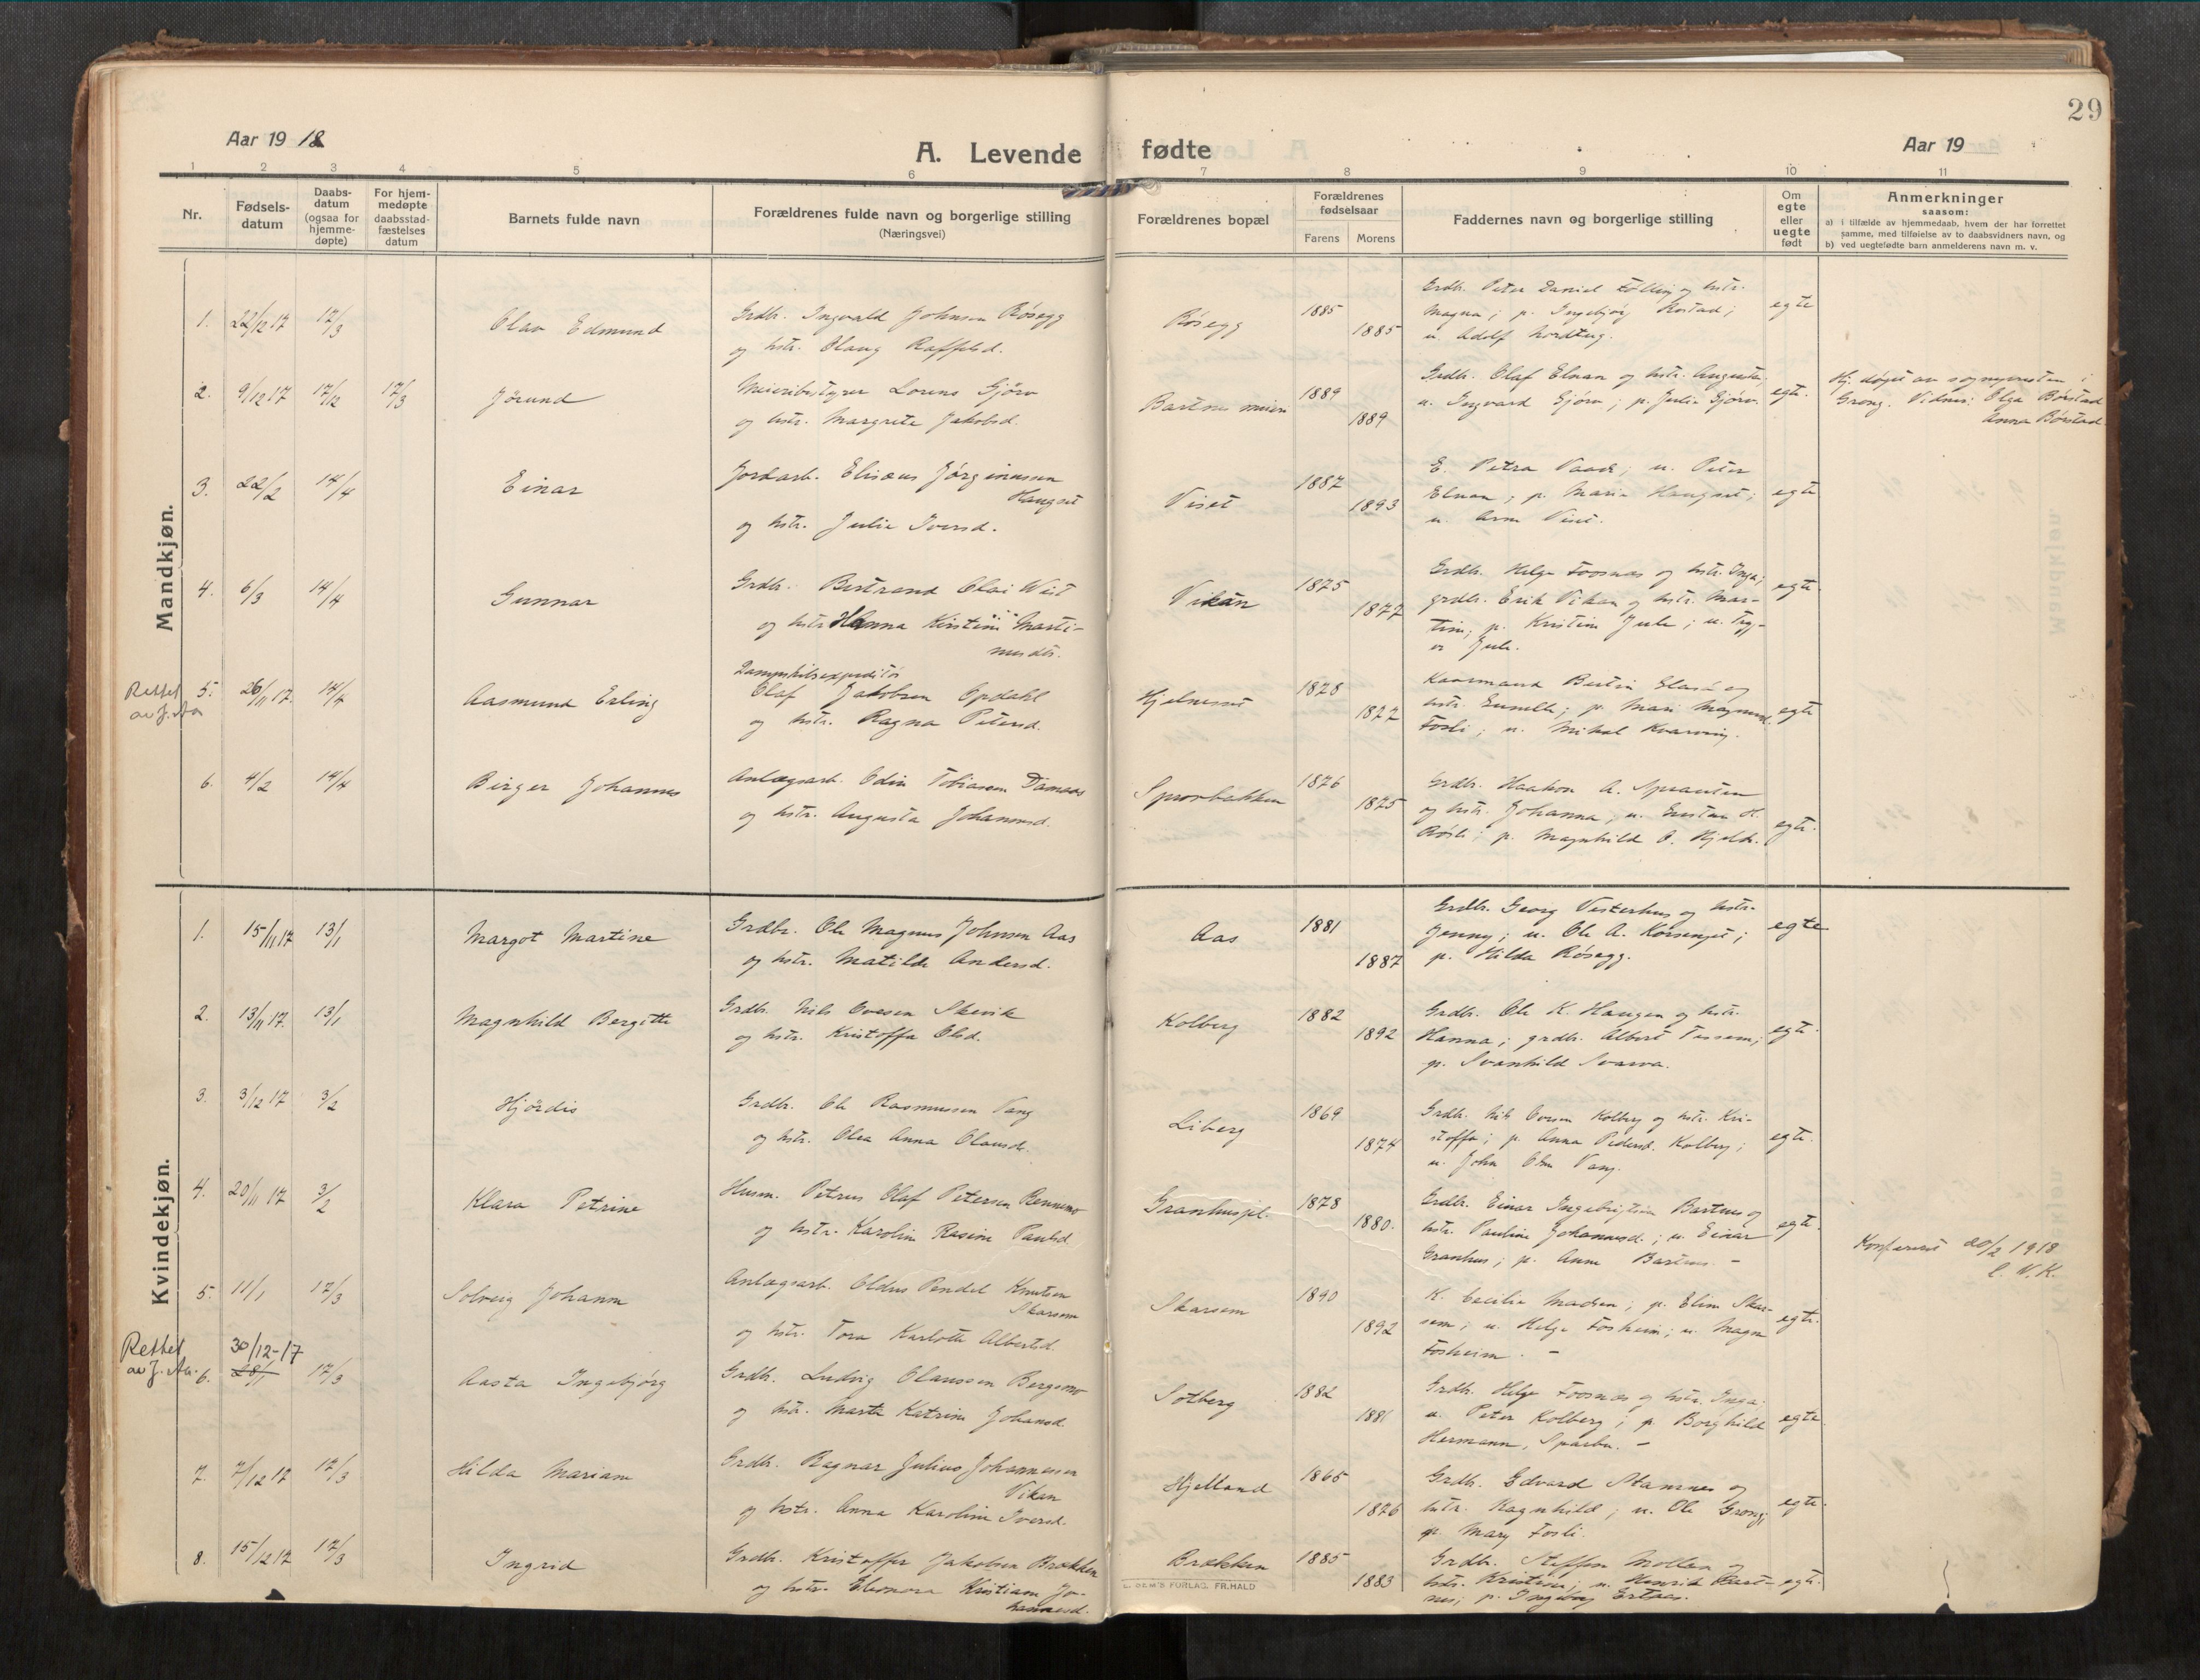 29
Aar 19 18
A. Levende fødte
Aar 19
1 2 3 4 5 6 7 8 9 10 11
Nr.
Fødsels-
datum
Daabs-
datum
(ogsaa for
hjemme-
døpte)
For hjem-
medøpte
daabsstad-
fæstelses
datum
Barnets fulde navn
Forældrenes fulde navn og borgerlige stilling
(Næringsvei)
Forældrenes bopæl
Forældrenes
fødselsaar
Farens Morens
Faddernes navn og borgerlige stilling
Om
egte
eller
uegte
født
Anmerkninger
saasom:
a) i tilfælde av hjemmedaab, hvem der har forrettet
samme, med tilføielse av to daabsvidners navn, og
b) ved uegtefødte barn anmelderens navn m. v.
Mandkjøn.
1. 22/12 17 17/3 Olav Edmund
Grdbr. Ingvald Johnsen Røsegg
og hstr. Olaug Raffelsd.
Røsegg 1885 1885
Grdbr. Peter Daniel Følling og hstr.
Magna; p. Ingebjørg Rostad;
u. Adolf Nordtug.
egte
2. 9/12 17 17/12 17/3 Jørund
Meieribestyrer Lorens Gjørv
og hstr. Margrete Jakobsd.
Bartnes meieri 1889 1889
Grdbr. Olaf Elnan og hstr. Augusta;
u. Ingvard Gjørv; p. Julie Gjørv.
egte.
Hj. døpt av sognepresten i
Grong. Vidner: Olga Børstad
Anna Børstad
3. 22/2 14/4 Einar
Jordarb. Elisæus Jørginussen
Haugset
og hstr. Julie Iversd.
Viset 1887 1893
E. Petra Vaade; u. Peter
Elnan; p. Marie Haugset;
u. Arne Viset.
egte
4. 6/3 14/4 Gunnar
Grdbr. Bertrand Olai Weit
og hstr. Hanna Kirstine Marti-
nusdtr.
Vikan 1875 1877
Grdbr. Helge Foosnæs og hstr. Inga;
grdbr. Erik Vikan og hstr. Mar-
tine; p. Kristine Jule; u. Tryg-
ve Jule.
egte.
Rettet
av J. Aa
5. 26/11 17. 14/4 Aasmund Erling
Dampskibsexpeditør
Olaf Jakobsen Opdahl
og hstr. Ragna Petersd.
Hjelmeset 1878 1877
Kaarmand Bertin Elasà og
hstr. p. Mari
Fosli; u. Mikal Kvarving.
egte
6. 4/2 14/4 Birger Johannes
Anlægsarb. Odin Tobiasen Damaas
og hstr. Augusta Johannesd.
Sprovbakken 1876 1875
Grdbr. Haakon A. Sprauten
og hstr. Johanna; u. H.
p. Magnhild O. Hjelde.
egte.
Kvindekjøn.
1. 15/11 17 13/1 Margot Martine
Grdbr. Ole Magnus Johnsen Aas
og hstr. Matilde Andersd.
Aas 1881 1887
Grdbr. Georg Vesterhus og hstr.
Jenny; u. Ole A. Korsenget;
p. Hilda Røsegg.
egte
2. 13/11 17. 13/1 Magnhild Bergitte
Grdbr. Nils Ovesen Skevik
og hstr. Kristoffa Olsd.
Kolberg 1882 1892
Grdbr. Ole K. Haugen og hstr.
Hanna; grdbr. Albert Tessem;
p. Svanhild Svarva.
egte.
3. 3/12 17 3/2 Hjørdis
Grdbr. Ole Rasmussen Vang
og hstr. Olea Anna Olausdr.
Liberg 1869 1874
Grdbr. Nils Ovesen Kolberg og hstr. Kri-
stoffa; p. Anna Pedersd. Kolberg;
u. John Olsen Vang.
egte.
4. 20/11 17 3/2 Klara Petrine
Husm. Petrus Olaf Petersen Rennemo
og hstr. Karoline Rasine Paulsd.
Granhuspl. 1878 1880.
Grdbr. Einar Ingebrigtsen Bartnes og
hstr. Pauline Johannesd.; u. Einar
Granhus; p. Anne Bartnes. –
egte.
Konfereret 20/2 1918
C. V. K.
5. 11/1 17/3 Solveig Johanne
Anlægsarb. Oldus Pendel Knutsen
Skarsem
og hstr. Tora Karlotte Albertsd.
Skarsem 1890 1892
K. Cecilie Madsen; p. Eline Skar-
sem; u. Helge Fosheim; u. Magne
Fosheim. –
egte.
Rettet
av J. Aa.
30/12-17
6. 28/1 17/3 Aasta Ingebjørg
Grdbr. Ludvig Olaussen Bergsmo
og hstr. Marta Katrine Johansd.
Solberg 1882 1881
Grdbr. Helge Foosnæs og hstr. Inga.
u. Peter Kolberg; p. Borghild
Hermann, Sparbu. –
egte
7. 7/12 17 17/3 Hilda Mariane
Grdbr. Ragnar Julius Johannessen
Vikan
og hstr. Anna Karoline Iversd.
Hjelland 1865 1876
Grdbr. Edvard Stamnes og
hstr. Ragnhild; u. Ole Grong;
p. Mary Fosli.
egte.
8. 15/12 17 17/3 Ingrid
Grdbr. Kristoffer Jakobsen Brækken
og hstr. Eleonora Kristiane Jo-
hannesd.
Brækken 1885 1883
Grdbr. Steffen Mollan og
hstr. Kristine; u. Henrik Bart-
nes; p. Ingeborg Ertnes.
egte.
E. SEM'S FORLAG, FR.HALD